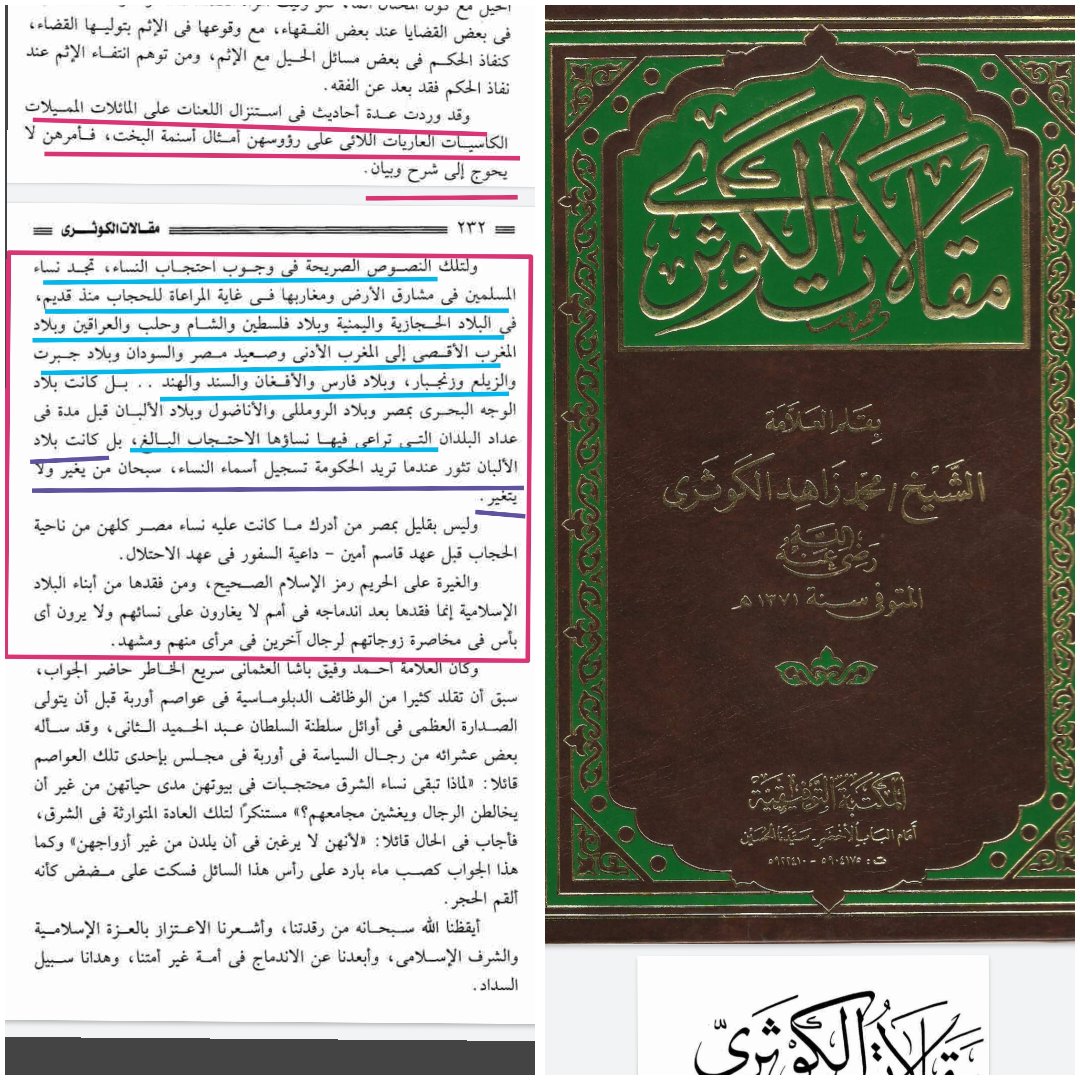 الحيل مع كون المحتال آثما، فلو وليت المرأة القضاء
فى بعض القضايا عند بعض الفـقهاء، مع وقوعها فى الإثم بتوليـها القضاء،
كنفاذ الحكـم فى بعض مسائل الحـيل مع الإثم، ومن توهم انتفاء الإثم عند
نفاذ الحكم فقد بعد عن الفقه.
وقد وردت عـدة أحاديث فى اسـتنزال اللعنات على المائلات المميـلات
الكاسيـات العاريات اللائى على رؤوسهن أمـثال أسنمة البخت، فـأمرهن لا
يحوج إلى شرح وبيان.
٢٣٢ مقـالات الكوثـرى
ولتلك النصـوص الصريحة فى وجـوب احتجـاب النساء، تجـد نساء
المسلمين فى مشارق الأرض ومغاربها فـى غاية المراعاة للحجاب منذ قديم،
فى البلاد الحـجازية واليمنية وبلاد فلسطين والشـام وحلب والعراقين وبلاد
المغرب الأقـصى إلى المغرب الأدنى وصـعيد مـصر والسودان وبلاد جـبرت
والزيلع وزنجبار، وبلاد فارس والأفـغان والسند والهند .. بـل كانت بلاد
الوجه البحـرى بمصر وبلاد الرومللى والأناضول وبلاد الألبـان قبل مدة فى
عداد البلدان التـى تراعى فيهـا نساؤها الاحتـجاب البـالغ، بل كانت بلاد
الألبان تثور عندما تريد الحكومة تسجيل أسماء النساء، سبحان من يغير ولا
يتغير.
وليس بقليل بمصر من أدرك مـا كانت عليه نساء مصـر كلهن من ناحية
الحجاب قبل عهد قاسم أمين - داعية السفور فى عهد الاحتلال.
والغيرة على الحريم رمز الإسلام الصـحيح، ومن فقدها من أبناء البلاد
الإسلامية إنما فقدها بعد اندماجه فى أمم لا يغارون على نسائهم ولا يرون أى
بأس فى مخاصرة زوجاتهم لرجال آخرين فى مرأى منهم ومشهد.
وكان العلامة أحـمد وفيق باشا العثمانى سريع الخـاطر حاضر الجواب،
سبق أن تقلد كثيرا من الوظائف الدبلوماسية فى عواصم أوربة قبل أن يتولى
الصـدارة العظمى فى أوائل سلطنة السلطان عـبد الحـميد الـثانى، وقد سـأله
بعض عشرائه من رجـال السياسة فى أوربة فى مجـلس بإحدى تلك العواصم
قائلا: «لماذا تبقى نساء الشرق محتجـبات فى بيوتهن مدى حياتهن من غير أن
يخالطن الرجال ويغشين مجامعهم؟» مستنكرًا لتلك العادة المتوارثة فى الشرق،
فأجاب فى الحال قائلا: «لأنهن لا يرغبن فى أن يلدن من غير أزواجهن» وكما
هذا الجواب كصب ماء بارد على رأس هذا السائل فسكت على مـضض كأنه
ألقم الحجر.
أيقظنا الله سـبحـانه من رقدتنا، وأشـعرنا الاعـتزاز بالعـزة الإسلامـية
والشرف الإسـلامى، وأبعدنا عن الاندماج فى أمـة غير أمتنا، وهدانا سـبيل
السداد.
مقالات الكوثرى
بقلم العلامة
الشيخ / محمد زاهد الكوثرى
رضى الله عنه
المتوفى سنة ١٣٧١ هـ
المكتبة التوفيقية
أمام الباب الأخضر - سيدنا الحسين
ت : ٥٩٠٤١٧٥ - ٥٩٢٢٤١٠
مقالات الكوثرى